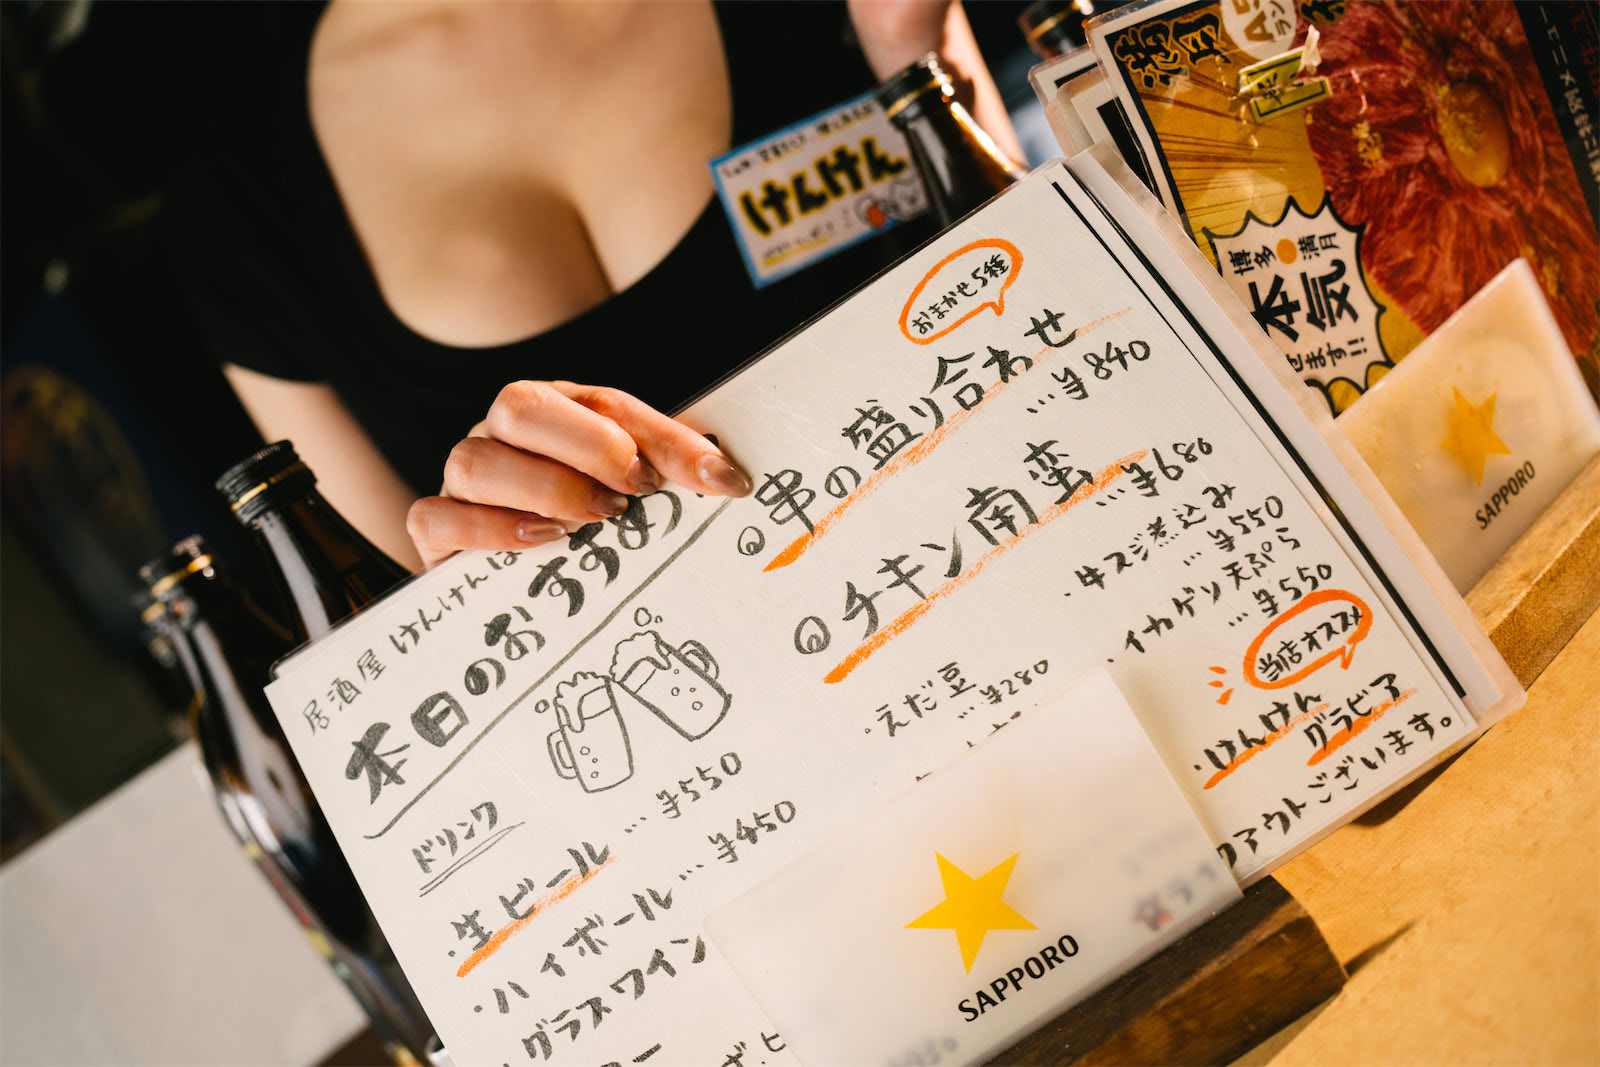 けんけん
居酒屋 けんけんは
本日のおすすめ
ドリンク
・生ビール … ¥550
・ハイボール … ¥450
・グラスワイン
おまかせ5種
◎串の盛り合わせ
… ¥840
◎チキン南蛮 … ¥680
・えだ豆
… ¥280
・牛スジ煮込み
… ¥550
・イカゲソ天ぷら
… ¥550
当店オススメ
・けんけん
グラビア
アウトございます。
SAPPORO
満月
博多 満月
本気
せます!!
SAPPORO